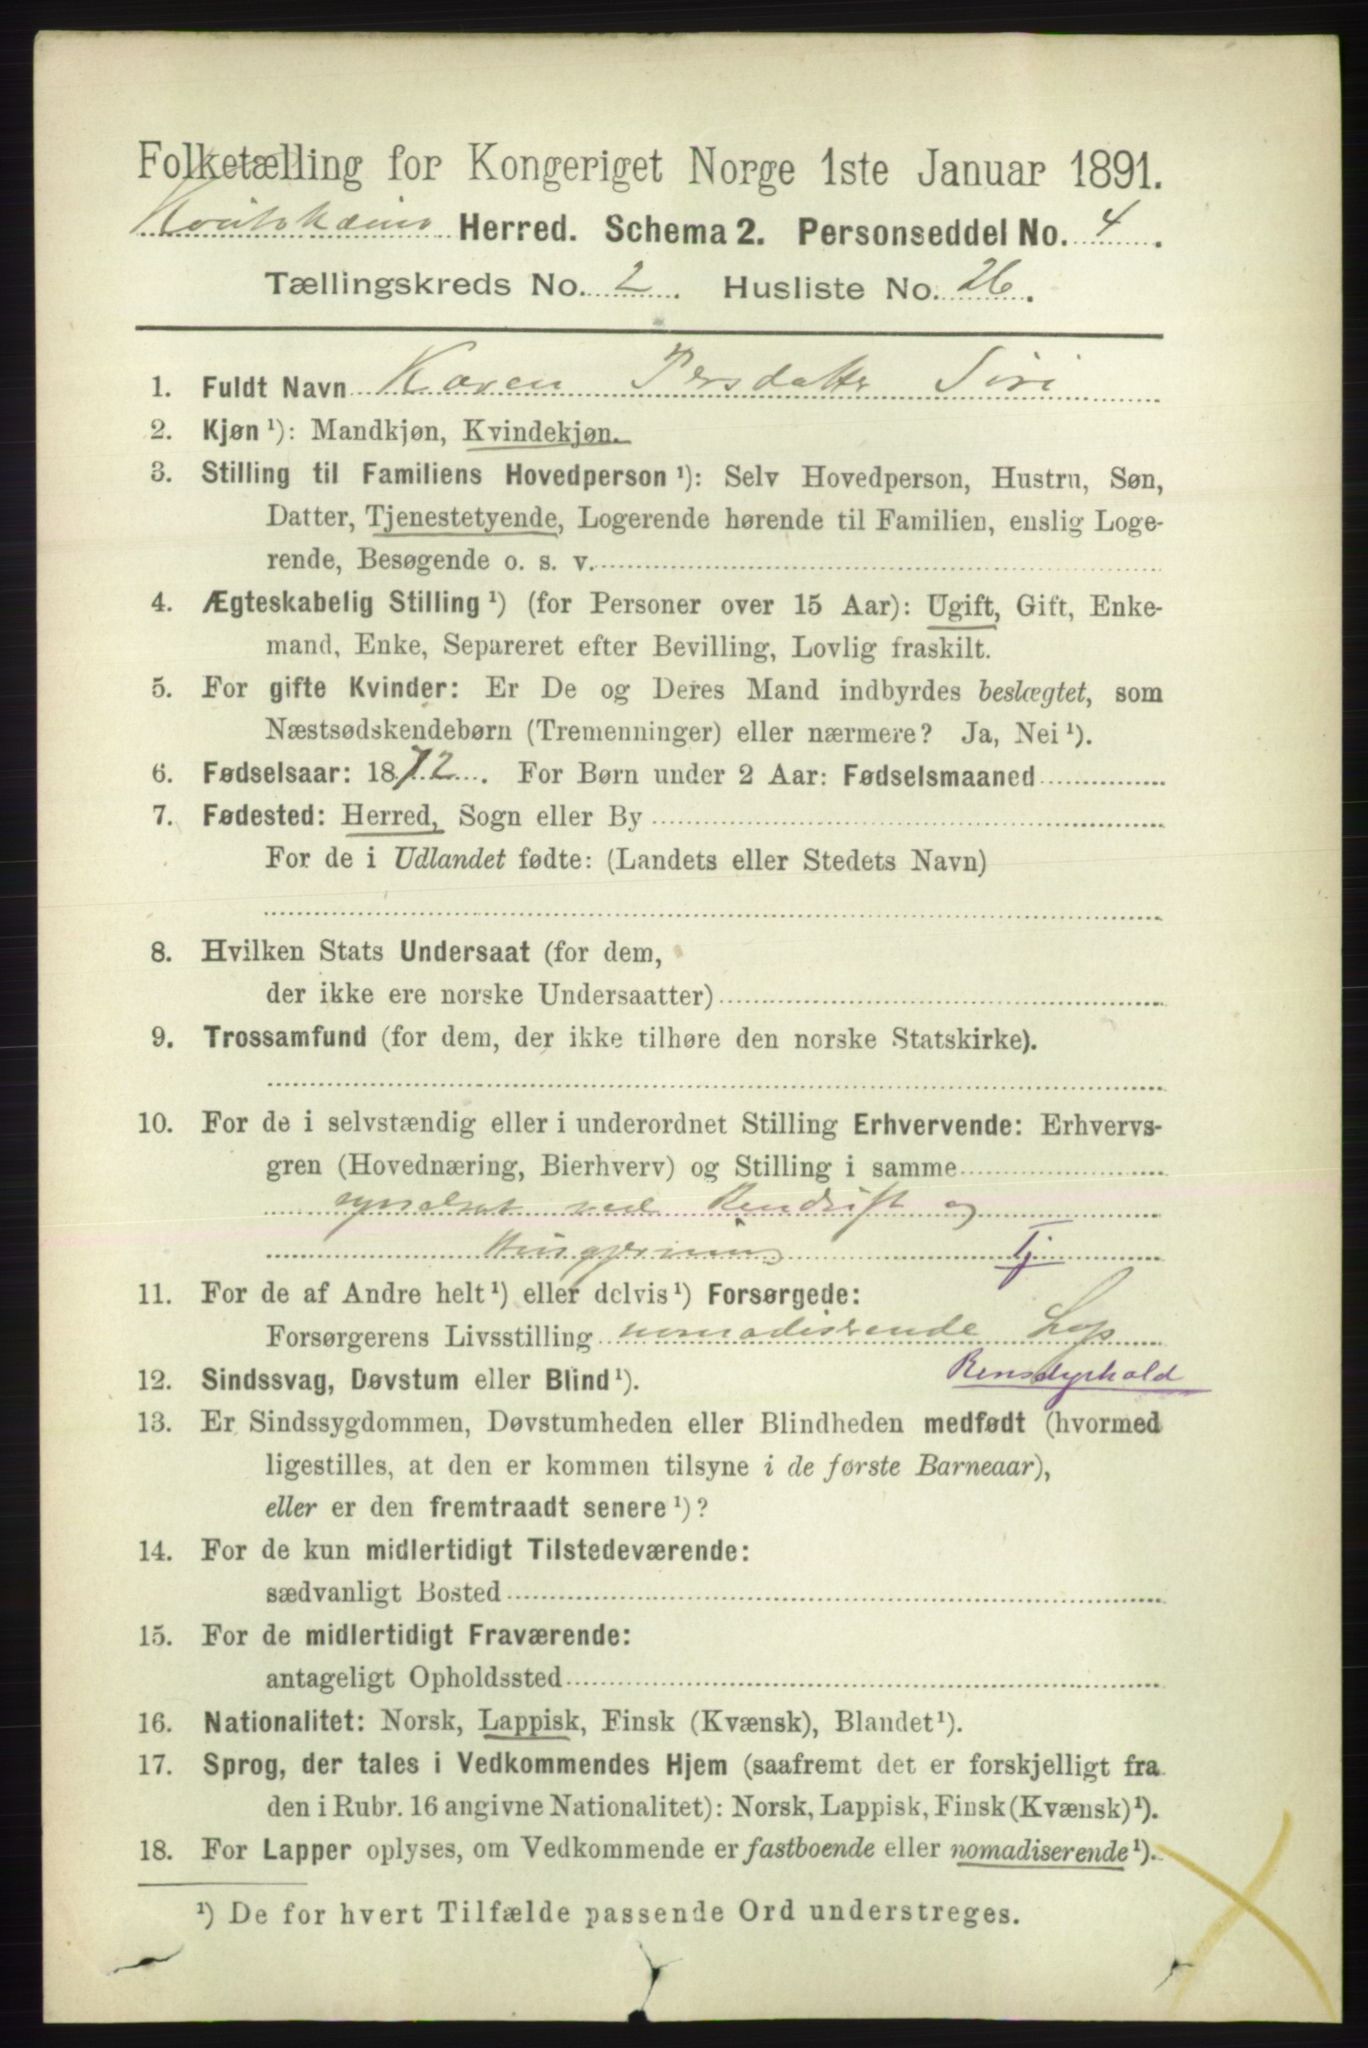 Folketælling for Kongeriget Norge 1ste Januar 1891.
Koutokæino Herred. Schema 2. Personseddel No. 4.
Tællingskreds No. 2. Husliste No. 26.
1. Fuldt Navn Karen Persdatter Siri
2. Kjøn ¹): Mandkjøn, Kvindekjøn.
3. Stilling til Familiens Hovedperson ¹): Selv Hovedperson, Hustru, Søn,
Datter, Tjenestetyende, Logerende hørende til Familien, enslig Loge-
rende, Besøgende o. s. v.
4. Ægteskabelig Stilling ¹) (for Personer over 15 Aar): Ugift, Gift, Enke-
mand, Enke, Separeret efter Bevilling, Lovlig fraskilt.
5. For gifte Kvinder: Er De og Deres Mand indbyrdes beslægtet, som
Næstsødskendebørn (Tremenninger) eller nærmere? Ja, Nei ¹).
6. Fødselsaar: 1872. For Børn under 2 Aar: Fødselsmaaned
7. Fødested: Herred, Sogn eller By
For de i Udlandet fødte: (Landets eller Stedets Navn)
8. Hvilken Stats Undersaat (for dem,
der ikke ere norske Undersaatter)
9. Trossamfund (for dem, der ikke tilhøre den norske Statskirke).
10. For de i selvstændig eller i underordnet Stilling Erhvervende: Erhvervs-
gren (Hovednæring, Bierhverv) og Stilling i samme
sysselsat ved Rendrift og
Husgjerning Tj
11. For de af Andre helt ¹) eller delvis ¹) Forsørgede:
Forsørgerens Livsstilling nomadiserende Lap
Rensdyrhold
12. Sindssvag, Døvstum eller Blind ¹).
13. Er Sindssygdommen, Døvstumheden eller Blindheden medfødt (hvormed
ligestilles, at den er kommen tilsyne i de første Barneaar),
eller er den fremtraadt senere ¹)?
14. For de kun midlertidigt Tilstedeværende:
sædvanligt Bosted
15. For de midlertidigt Fraværende:
antageligt Opholdssted
16. Nationalitet: Norsk, Lappisk, Finsk (Kvænsk), Blandet ¹).
17. Sprog, der tales i Vedkommendes Hjem (saafremt det er forskjelligt fra
den i Rubr. 16 angivne Nationalitet): Norsk, Lappisk, Finsk (Kvænsk) ¹).
18. For Lapper oplyses, om Vedkommende er fastboende eller nomadiserende ¹).
¹) De for hvert Tilfælde passende Ord understreges.